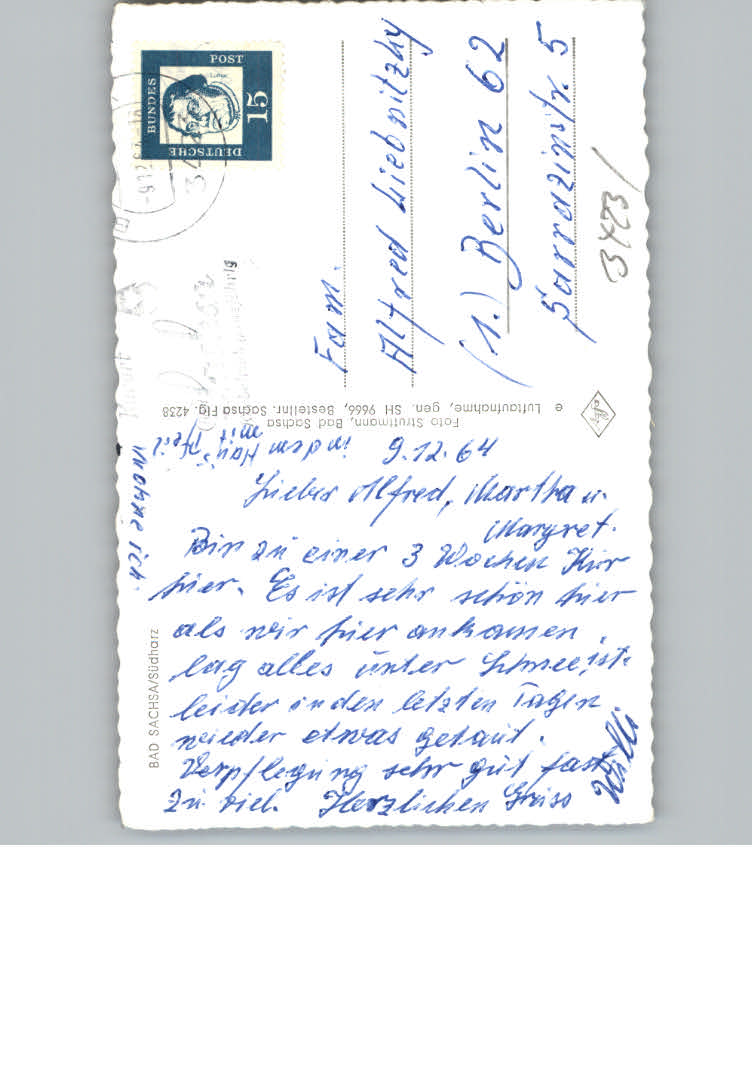 9.12.64
Lieber Alfred, Martha u.
Margret.
Bin zu einer 3 Wochen Kur
hier. Es ist sehr schön hier
als wir hier ankamen,
lag alles unter Schnee, ist
leider in den letzten Tagen
wieder etwas getaut.
Verpflegung sehr gut fast
zu viel. Herzlichen Gruss
Willi
in dem Haus
mit Pfeil
wohne ich.
BAD SACHSA/Südharz
Foto Struttmann, Bad Sachsa
e Luftaufnahme, gen. SH 9666, Bestellnr. Sachsa Flg. 4238
DEUTSCHE
BUNDES
POST
15
Fam.
Alfred Liebnitzky
(1.) Berlin 62
Sarrazinstr. 5
3423/